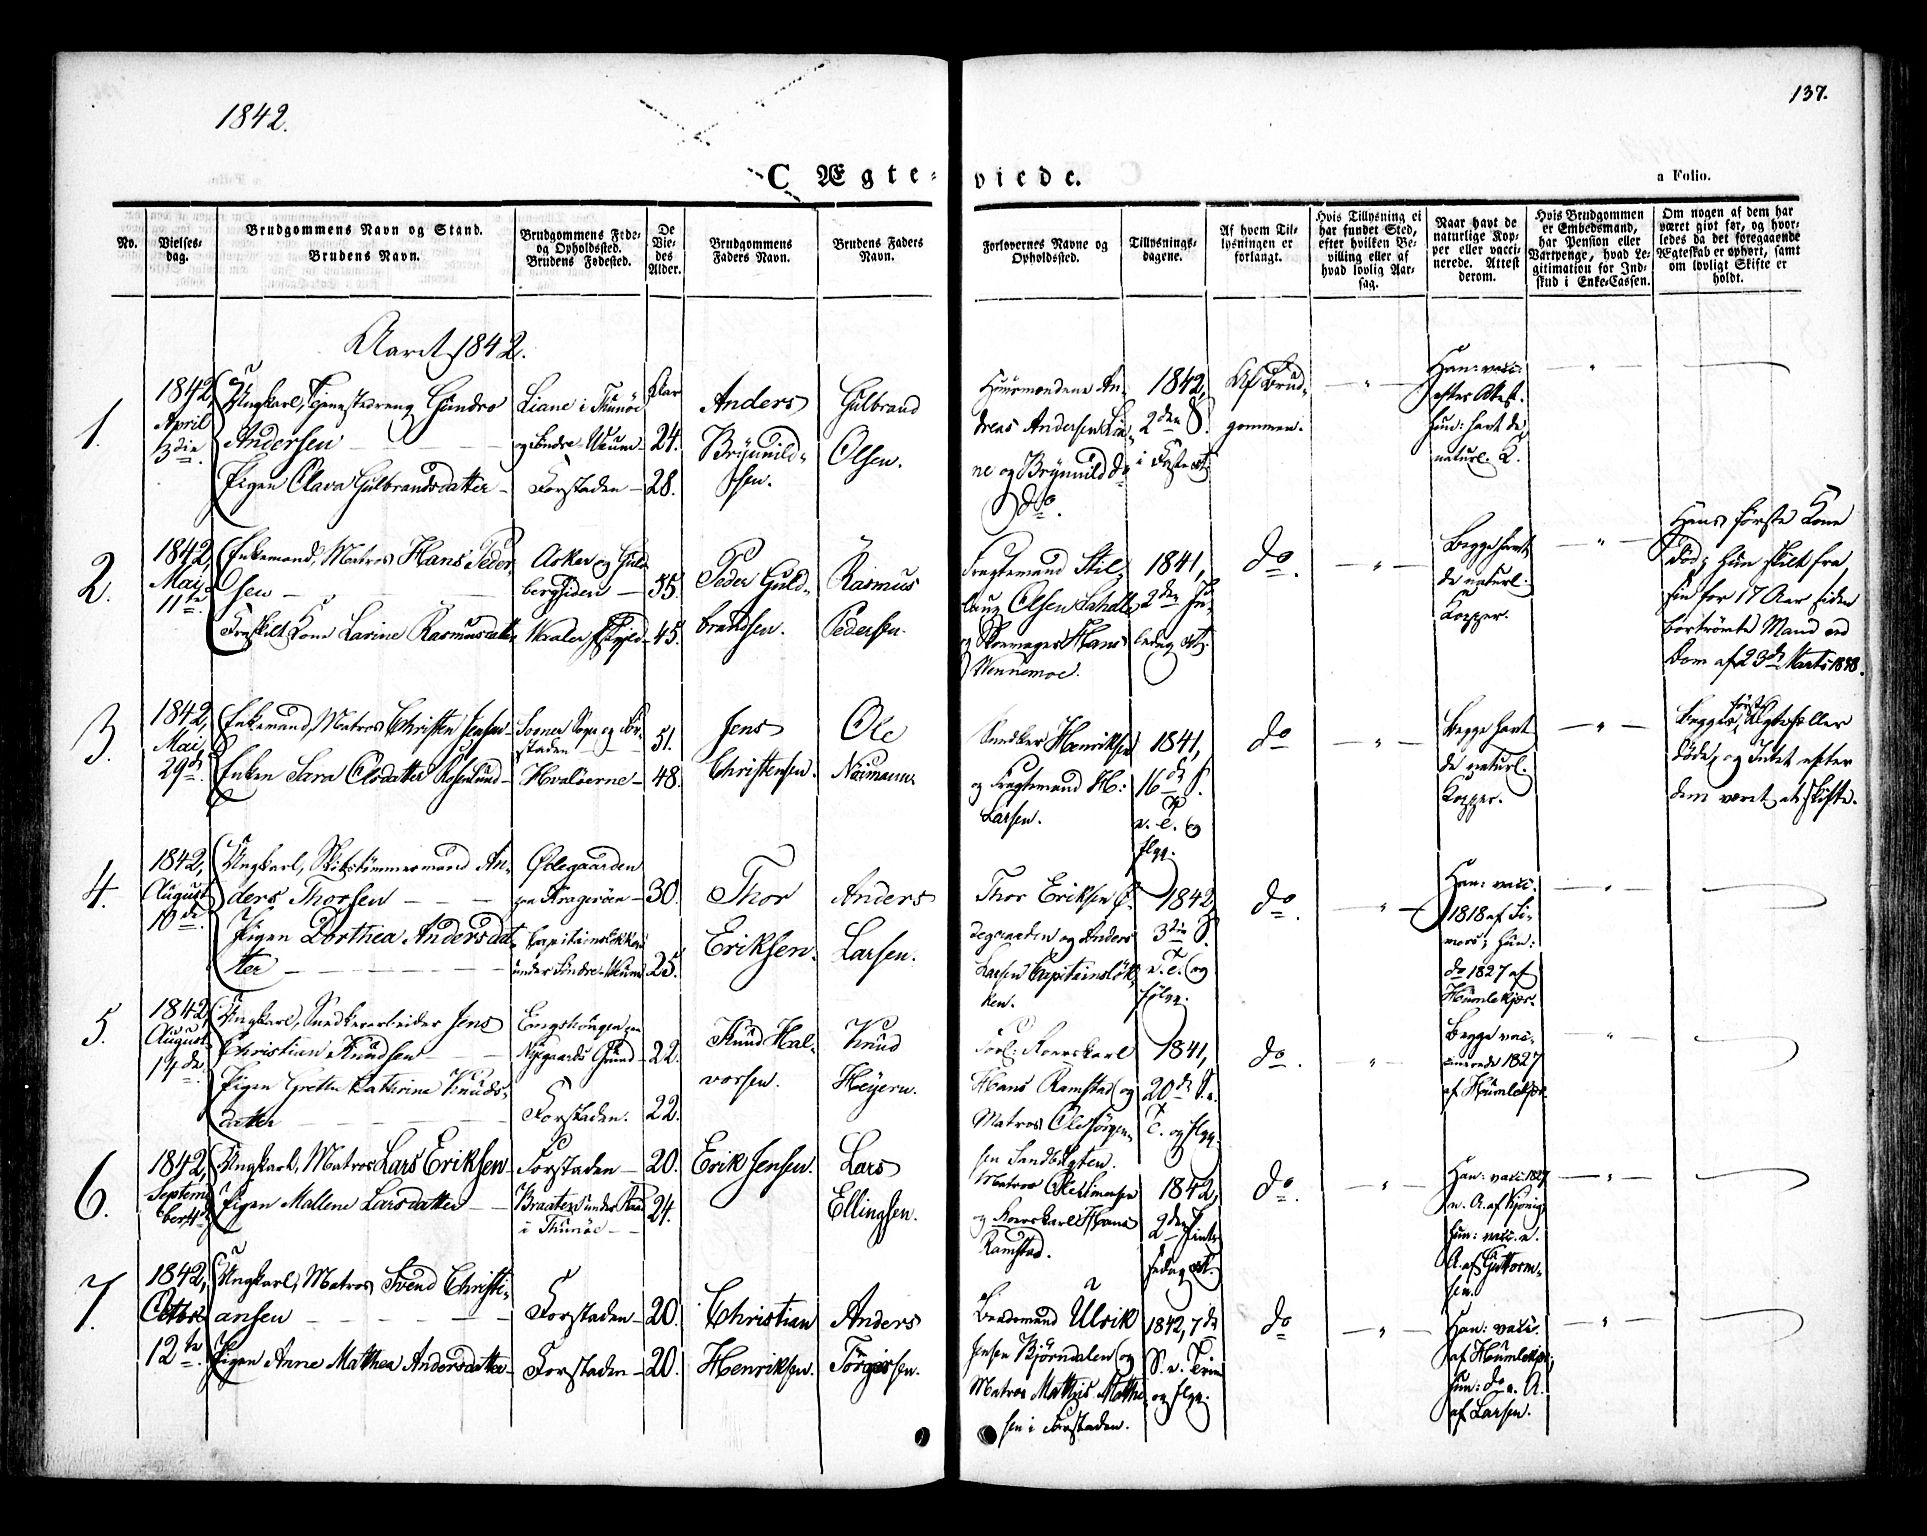 1842.
137.
C Ægte-
viede.
a Folio.
No.
Vielses-
dag.
Brudgommens Navn og Stand.
Brudens Navn.
Brudgommens Føde-
og Opholdssted.
Brudens Fødested.
De
Vie-
des
Alder.
Brudgommens
Faders Navn.
Brudens Faders
Navn.
Forlovernes Navne og
Opholdssted.
Tillysnings-
dagene.
Af hvem Til-
lysningen er
forlangt.
Hvis Tillysning ei
har fundet Sted,
efter hvilken Be-
villing eller af
hvad lovlig Aar-
sag.
Naar havt de
naturlige Kop-
per eller vacci-
nerede. Attest
derom.
Hvis Brudgommen
er Embedsmand,
har Pension eller
Vartpenge, hvad Le-
gitimation for Ind-
skud i Enke-Cassen.
Om nogen af dem har
været givt før, og hvor-
ledes da det foregaaende
Ægteskab er ophørt, samt
om lovligt Skifte er
holdt.
Aaret 1842.
1.
1842,
April
3die.
Ungkarl, Tjenestedreng Gundro
Andersen
Pigen Olava Gulbrandsdatter
Liane i Thunöe
Forstaden
Aar
24.
28.
Anders
Brynild-
sen.
Gulbrand
Olsen.
Huusmændene An-
dreas Andersen Lia-
ne og Brynild do
do.
1842,
2den S.
i Faste etc.
Af Brud-
gommen.
Han: vacc:
efter Attest.
hun: havt de
naturl. K.
2.
1842,
Mai,
11te.
Enkemand, Matros Hans Peder-
sen
Fraskilt Kone Larine Rasmusdatter
Asker og Guld-
bergsiden
Waaler Præstgjeld
55.
45.
Peder Guld-
brandsen.
Rasmus
Pedersen.
Fragtemand Stil-
laug Olsen
og Skomager Hans
Wennemoe.
1841,
2den Ju-
ledag etc.
do.
Begge havt
de naturl.
Kopper.
Hans første Kone
død; Hun skilt fra
sin for 17 Aar siden
bortrømte Mand ved
Dom af 23de Marts 1838.
3.
1842,
Mai,
29de.
Enkemand, Matros Christen Jensen
Enken Sara Olsdatter Rosenlund
Sogn og For-
staden
Hvaløerne
51.
48.
Jens
Christensen.
Ole
Naimann.
Snedker Henriksen
og Fragtemand H:
Larsen.
1841,
16de S.
e. T. og
flgg.
do
Begge havt
de naturl.
Kopper.
Begges første Ægtefæller
døde, og Intet efter
dem været at skifte.
4.
1842,
August
10de.
Ungkarl, Skibstömmermand An-
ders Thorsen
Pigen Dorthea Andersdat-
ter
Ødegaarden
paa Kragerøen
Capitainsløkken
30.
25.
Thor
Eriksen.
Anders
Larsen.
Thor Eriksen Ø-
degaarden og Anders
Larsen Capitainsløk-
ken.
1842
3die S.
e. T. og
følgg.
do.
Han: vacc.
1818 af Si-
mers; hun:
do 1827 af
Heumlekjær.
5.
1842,
August
14de.
Ungkarl, Snedkerarbeider Jens
Christian Knudsen
Pigen Grethe Kathrine Knuds-
datter
Engehougen paa
Nygaards Grund
Forstaden.
22.
22.
Knud Hal-
vorsen.
Knud
Heyern.
Forl: Roerskarl
Hans Ramstad og
Matros Ole Jörgen-
sen Sandbugten.
1841,
20de S. e.
T. og flgg.
do.
Begge vac-
cinerede 1827
af Heumlekjær.
6.
1842,
Septem-
ber 4de
Ungkarl, Matros Lars Eriksen
Pigen Mallene Larsdatter
Forstaden
Braaten under
i Thunöe
20.
24.
Erik Jensen.
Lars
Ellingsen.
Matros
og Roerskarl Hans
Ramstad.
1842,
2den Pintse-
dag etc.
do.
Han: vacc: 1827
e. A. af Kjönig
hun: vacc. e.
A. af Guttorm-
sen.
7.
1842,
Octobr
12te.
Ungkarl, Matros Svend Christi-
ansen
Pigen Anne Mathea Andersdatter
Forstaden
Forstaden
20.
20.
Christian
Henriksen.
Anders
Törgersen.
Baadsmand Ulrik
Jensen Bjørndalen og
Matros Mathis Mathe-
sen i Forstaden.
1842, 7de
S. e. Trin.
og flgg.
do
Han: vacc.
af Heumlekjær;
hun: do e. A.
af Larsen.